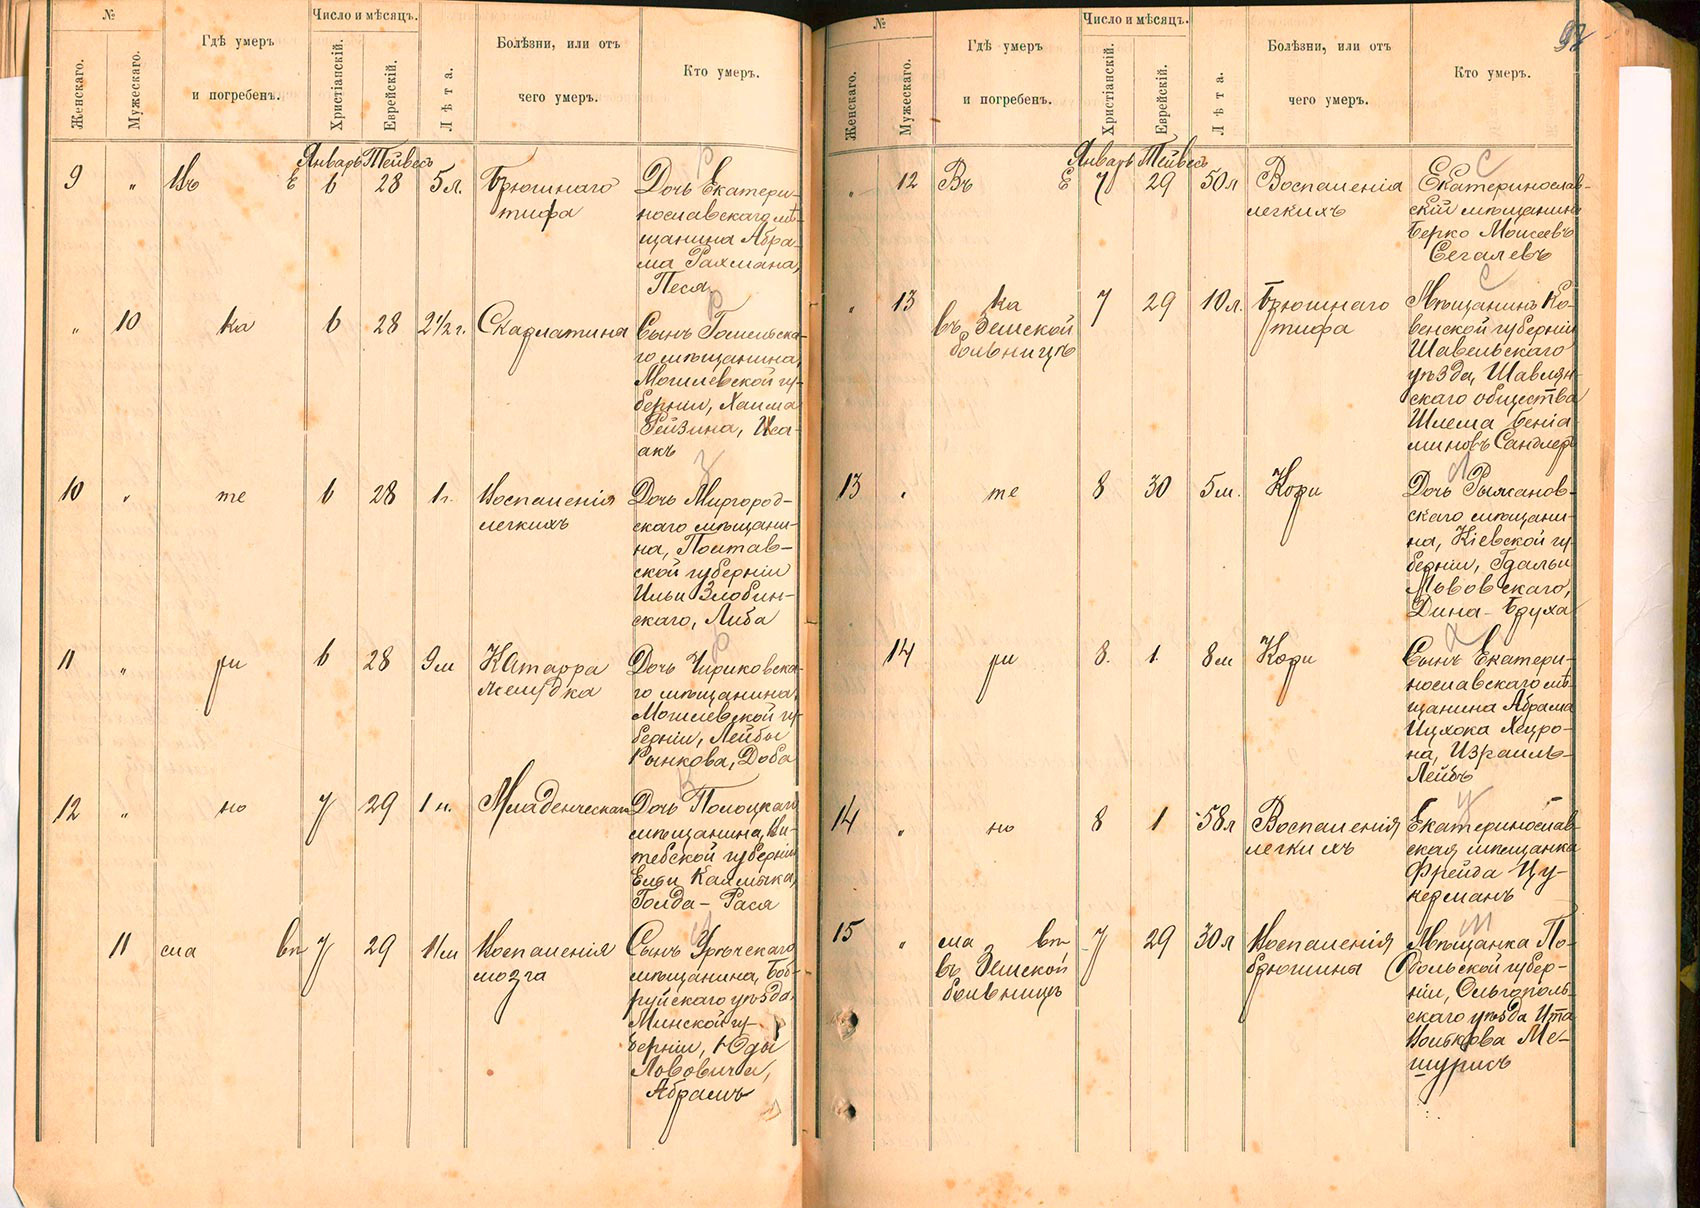 №
Число и мѣсяцъ.
Женскаго.
Мужескаго.
Гдѣ умеръ
и погребенъ.
Христіанскій.
Еврейскій.
Лѣта.
Болѣзни, или отъ
чего умеръ.
Кто умеръ.
Январь Тейвесъ
9 " Въ Е 6 28 5 л. Брюшнаго
тифа
Дочь Екатери-
нославскаго мѣ-
щанина Абра-
ма Рахмана,
Песя
" 10 ка 6 28 2 1/2 г. Скарлатина
Сынъ Гомельска-
го мѣщанина,
Могилевской гу-
берніи, Хаима
Рейзина, Иса-
акъ
10 " те 6 28 1 г. Воспаленія
легкихъ
Дочь Миргород-
скаго мѣщани-
на, Полтав-
ской губерніи
Ильи Злобин-
скаго, Либа
11 " ри 6 28 9 м Катарра
желудка
Дочь Чириковска-
го мѣщанина,
Могилевской гу-
берніи, Лейбы
Рынкова, Доба
12 " но 7 29 1 н. Младенческая
Дочь Полоцкаго
мѣщанина, Ви-
тебской губерніи
Калмыка,
Голда-Рася
11 сла вѣ 7 29 11 м Воспаленія
мозга
Сынъ
мѣщанина, Боб-
руйскаго уѣзда,
Минской гу-
берніи, Юды
Лововича,
Абрамъ
98
№
Число и мѣсяцъ.
Женскаго.
Мужескаго.
Гдѣ умеръ
и погребенъ.
Христіанскій.
Еврейскій.
Лѣта.
Болѣзни, или отъ
чего умеръ.
Кто умеръ.
Январь Тейвесъ
" 12 Въ Е 7 29 50 л Воспаленія
легкихъ
Екатеринослав-
скій мѣщанинъ
Берко Моисеевъ
Сегалевъ
" 13 ка 7 29 10 л. Брюшнаго
въ Земской
больницѣ
тифа
Мѣщанинъ Ко-
венской губерніи
Шавельскаго
уѣзда, Шавлян-
скаго общества
Шлема Беніа-
миновъ Сандлеръ
13 " те 8 30 5 м. Кори
Дочь Рыжанов-
скаго мѣщани-
на, Кіевской гу-
берніи, Гдальи
Львовскаго,
Дина-Бруха
14 ри 8. 1. 8 м Кори
Сынъ Екатери-
нославскаго мѣ-
щанина Абрама
Ицхока
на, Израиль-
Лейбъ
14 " но 8 1 58 л Воспаленія
легкихъ
Екатеринослав-
ская мѣщанка
Фрейда Цу-
керманъ
15 " сла вѣ 7 29 30 л Воспаленія
въ Земской
больницѣ
брюшины
Мѣщанка По-
дольской губер-
ніи, Ольгополь-
скаго уѣзда Ита
Волькова Ме-
шурисъ